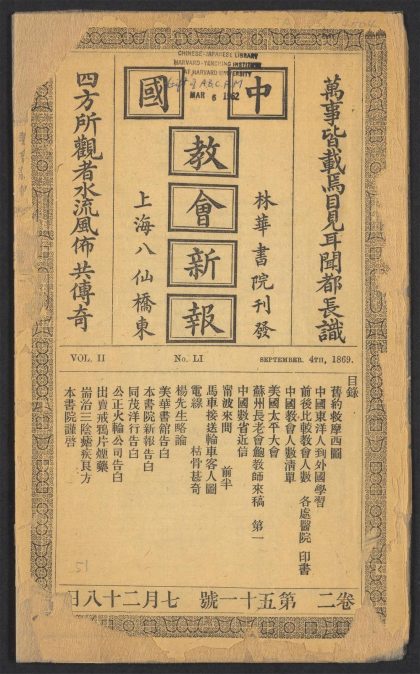 CHINESE-JAPANESE LIBRARY
HARVARD-YENCHING INSTITUTE
AT HARVARD UNIVERSITY
Gift of A.B.C.F.M
MAR 6 1962
萬事皆載焉目見耳聞都長識
林華書院刊發
中國
教會新報
上海八仙橋東
四方所觀者水流風佈共傳奇
VOL. II No. LI SEPTEMBER. 4TH, 1869.
目錄
舊約救摩西圖
中國東洋人到外國學習
前後比較教會人數 各處醫院 印書
中國教會人數清單
美國太平大會
蘇州長老會鮑教師來稿 第一
中國數省近信
甯波來間 前半
馬車接送輪車客人圖
電線 枯骨甚奇
楊先生略論
美華書館告白
本書院新報告白
同茂洋行告白
公正火輪公司告白
出賣戒鴉片煙藥
耑治三陰瘧疾良方
本書院謹啓
51
卷二 第五十一號 七月二十八日